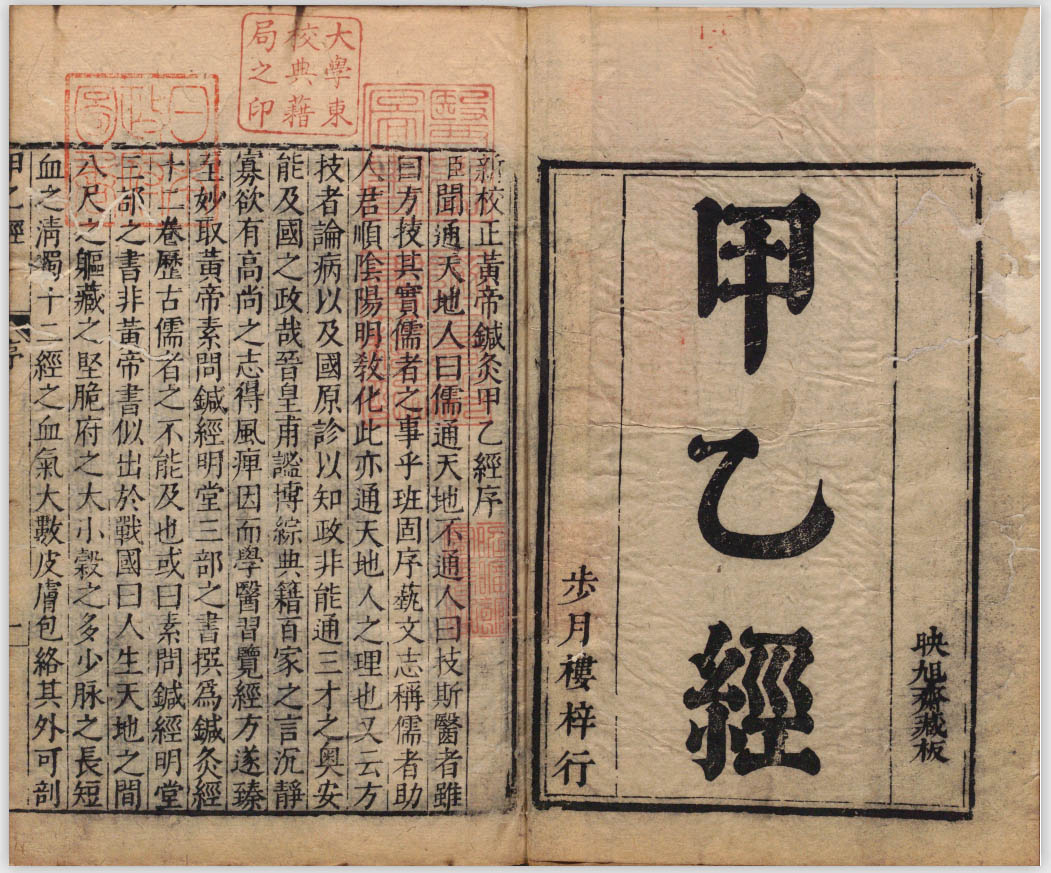 映旭齋藏板
甲乙經
步月樓梓行
大學東
校典藉
局之印
新校正黃帝鍼灸甲乙經序
臣聞通天地人曰儒通天地不通人曰技斯醫者雖
曰方技其實儒者之事乎班固序藝文志稱儒者助
人君順陰陽明敎化此亦通天地人之理也又云方
技者論病以及國原診以知政非能通三才之奧安
能及國之政哉晉皇甫謐博綜典籍百家之言沉靜
寡欲有高尚之志得風痺因而學醫習覽經方遂臻
至妙取黃帝素問鍼經明堂三部之書撰爲鍼灸經
十二卷歷古儒者之不能及也或曰素問鍼經明堂
三部之書非黃帝書似出於戰國曰人生天地之間
八尺之軀藏之堅脆府之大小穀之多少脉之長短
血之淸濁十二經之血氣大數皮膚包絡其外可剖
甲乙經
序
一